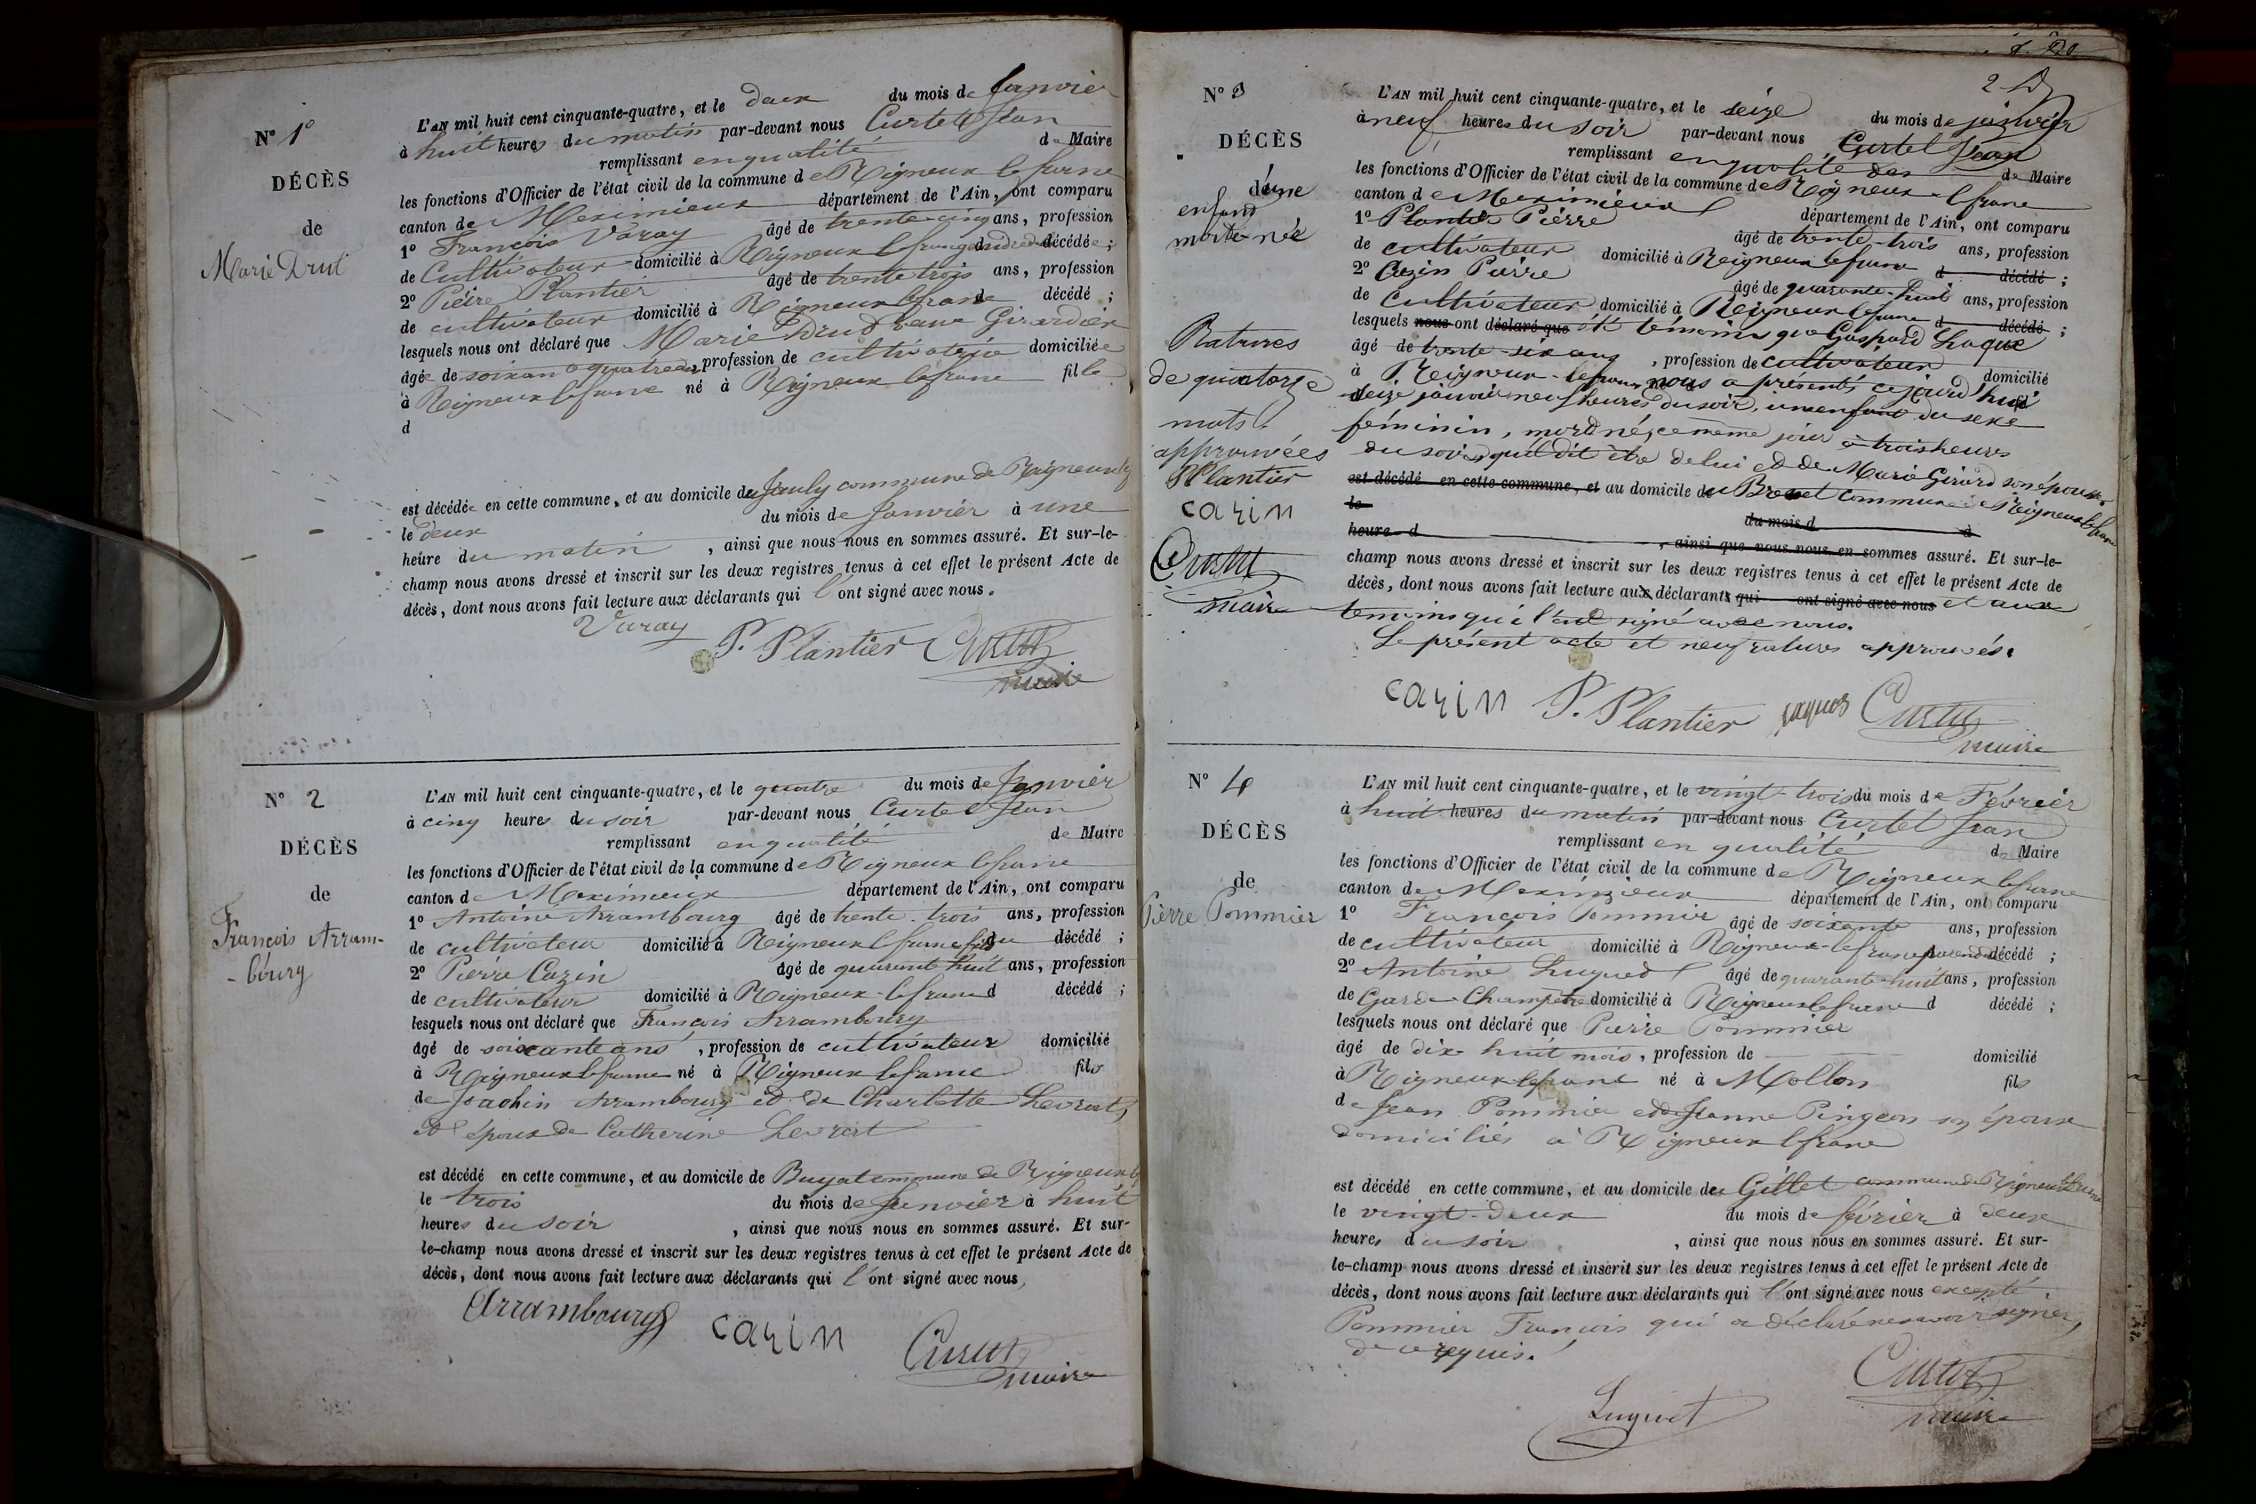 N° 1°
DÉCÈS
de
Marie Drut
L'AN mil huit cent cinquante-quatre, et le deux du mois de Janvier
à huit heures du matin par-devant nous Curtet Jean
remplissant en qualité de Maire
les fonctions d'Officier de l'état civil de la commune de Rigneux le franc
canton de Meximieux département de l'Ain, ont comparu
1° François Varay âgé de trente-cinq ans, profession
de Cultivateur domicilié à Rigneux le franc décédée ;
2° Pierre Plantier âgé de trente trois ans, profession
de cultivateur domicilié à Rigneux le franc d décédé ;
lesquels nous ont déclaré que Marie Drut
âgée de soixante quatre ans, profession de cultivatrice domiciliée
à Rigneux le franc né à Rigneux le franc fille
d
est décédée en cette commune, et au domicile de commune de Rigneux le
le deux du mois de Janvier à une
heure du matin, ainsi que nous nous en sommes assuré. Et sur-le-
champ nous avons dressé et inscrit sur les deux registres tenus à cet effet le présent Acte de
décès, dont nous avons fait lecture aux déclarants qui l'ont signé avec nous.
Varay P. Plantier Curtet
maire
N° 2
DÉCÈS
de
François Arram-
-bourg
L'AN mil huit cent cinquante-quatre, et le quatre du mois de Janvier
à cinq heures du soir par-devant nous Curtet Jean
remplissant en qualité de Maire
les fonctions d'Officier de l'état civil de la commune de Rigneux le franc
canton de Meximieux département de l'Ain, ont comparu
1° Antoine Arrambourg âgé de trente-trois ans, profession
de cultivateur domicilié à Rigneux le franc fils du décédé ;
2° Pierre Cazin âgé de quarante huit ans, profession
de cultivateur domicilié à Rigneux-le franc d décédé ;
lesquels nous ont déclaré que François Arrambourg
âgé de soixante ans, profession de cultivateur domicilié
à Rigneux le franc né à Rigneux le franc fils
de Joachin Arrambourg et de Charlotte Levrat,
et époux de Catherine Levrat
est décédé en cette commune, et au domicile de Buyat commune de Rigneux le
le trois du mois de Janvier à huit
heures du soir, ainsi que nous nous en sommes assuré. Et sur-
le-champ nous avons dressé et inscrit sur les deux registres tenus à cet effet le présent Acte de
décès, dont nous avons fait lecture aux déclarants qui l'ont signé avec nous,
Arrambourg cazin Curtet
maire
N° 3
DÉCÈS
d'une
enfant
morte-née
Ratures
de quatorze
mots
approuvées
P Plantier
cazin
Curtet
maire
L'AN mil huit cent cinquante-quatre, et le seize du mois de janvier
à neuf heures du soir par-devant nous Curtet Jean
remplissant en qualité de Maire
les fonctions d'Officier de l'état civil de la commune de Rigneux le franc
canton de Meximieux département de l'Ain, ont comparu
1° Plantier Pierre âgé de trente-trois ans, profession
de cultivateur domicilié à Rigneux le franc d décédé ;
2° Cazin Pierre âgé de quarante-huit ans, profession
de cultivateur domicilié à Rigneux le franc d décédé ;
lesquels nous ont déclaré que été témoins que Gaspard
âgé de trente-six ans, profession de cultivateur domicilié
à Rigneux-le franc nous a présenté ce jourd'hui
seize janvier neuf heures du soir, un enfant du sexe
féminin, mort né, ce même jour à trois heures
du soir, qu'il dit être de lui et de Marie Girard son épouse
est décédé en cette commune, et au domicile de commune de Rigneux le franc
le du mois d à
heure d, ainsi que nous nous en sommes assuré. Et sur-le-
champ nous avons dressé et inscrit sur les deux registres tenus à cet effet le présent Acte de
décès, dont nous avons fait lecture aux déclarants qui ont signé avec nous et aux
temoins qui l'ont signé avec nous.
Le présent acte et neuf ratures approuvés.
cazin P. Plantier Curtet
maire
N° 4
DÉCÈS
de
Pierre Pommier
L'AN mil huit cent cinquante-quatre, et le vingt-trois du mois de Février
à huit heures du matin par-devant nous Curtet Jean
remplissant en qualité de Maire
les fonctions d'Officier de l'état civil de la commune de Rigneux le franc
canton de Meximieux département de l'Ain, ont comparu
1° François Pommier âgé de soixante ans, profession
de cultivateur domicilié à Rigneux-le franc décédé ;
2° Antoine Luquet âgé de quarante-huit ans, profession
de Garde Champêtre domicilié à Rigneux le franc d décédé ;
lesquels nous ont déclaré que Pierre Pommier
âgé de dix huit mois, profession de domicilié
à Rigneux le franc né à Mollon fils
de Jean Pommier et de Jeanne Pingeon son épouse
domiciliés à Rigneux le franc
est décédé en cette commune, et au domicile de Gillet commune de Rigneux le franc
le vingt-deux du mois de février à deux
heures du soir, ainsi que nous nous en sommes assuré. Et sur-
le-champ nous avons dressé et inscrit sur les deux registres tenus à cet effet le présent Acte de
décès, dont nous avons fait lecture aux déclarants qui l'ont signé avec nous excepté
Pommier François qui a déclaré ne savoir signer,
de ce requis.
Luquet Curtet
maire